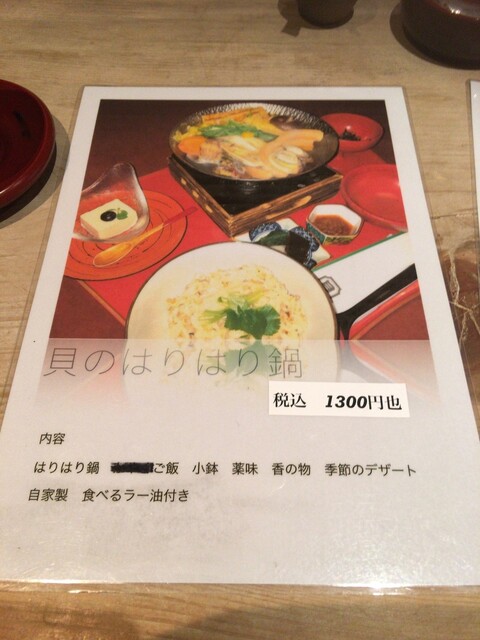 貝のはりはり鍋
税込 1300円也
内容
はりはり鍋 ご飯 小鉢 薬味 香の物 季節のデザート
自家製 食べるラー油付き